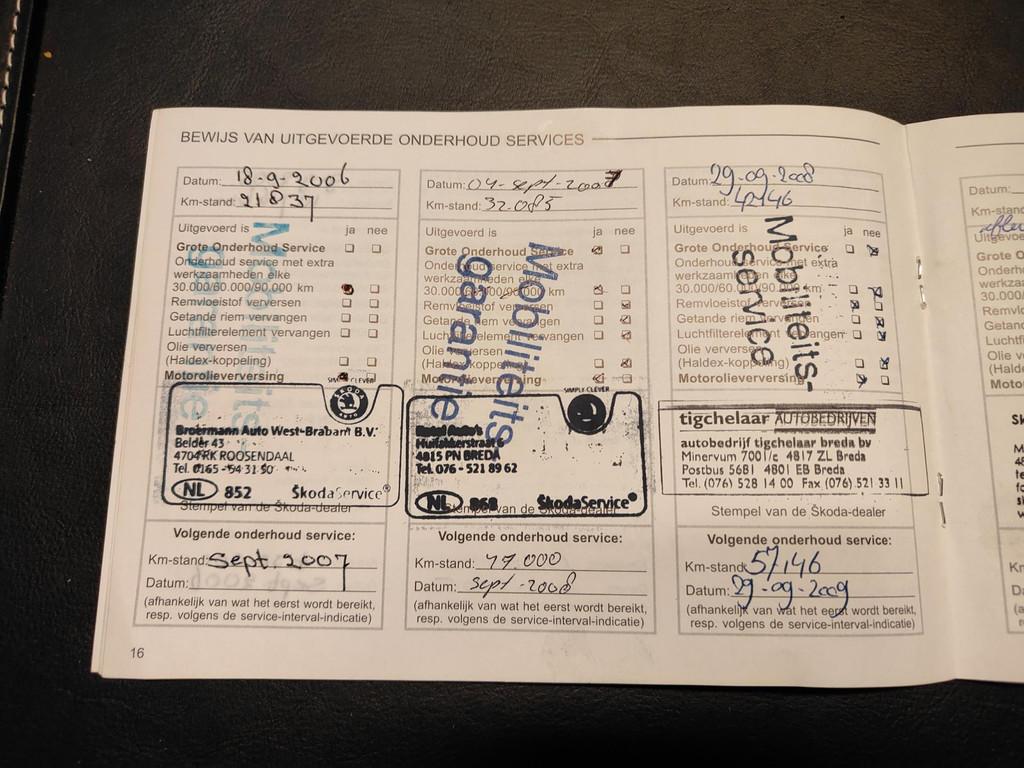 BEWIJS VAN UITGEVOERDE ONDERHOUD SERVICES
Datum: 18-9-2006
Km-stand: 21837
Uitgevoerd is ja nee
Grote Onderhoud Service
Onderhoud service met extra
werkzaamheden elke
30.000/60.000/90.000 km
Remvloeistof verversen
Getande riem vervangen
Luchtfilterelement vervangen
Olie verversen
(Haldex-koppeling)
Motorolieverversing
Mobiliteits
garantie
SIMPLY CLEVER
SKODA
AUTO
Broermann Auto West-Brabant B.V.
Belder 43
4704 RK ROOSENDAAL
Tel. 0165 - 54 31 50
NL 852 ŠkodaService®
Stempel van de Škoda-dealer
Volgende onderhoud service:
Km-stand: Sept. 2007
Datum:
(afhankelijk van wat het eerst wordt bereikt,
resp. volgens de service-interval-indicatie)
Datum: 04-sept-2007
Km-stand: 32.085
Uitgevoerd is ja nee
Grote Onderhoud Service
Onderhoud service met extra
werkzaamheden elke
30.000/60.000/90.000 km
Remvloeistof verversen
Getande riem vervangen
Luchtfilterelement vervangen
Olie verversen
(Haldex-koppeling)
Motorolieverversing
Mobiliteits
garantie
SIMPLY CLEVER
Huifakkerstraat 6
4815 PN BREDA
Tel. 076 - 521 89 62
NL 868 ŠkodaService®
Stempel van de Škoda-dealer
Volgende onderhoud service:
Km-stand: 47.000
Datum: sept-2008
(afhankelijk van wat het eerst wordt bereikt,
resp. volgens de service-interval-indicatie)
Datum: 29-09-2008
Km-stand: 42146
Uitgevoerd is ja nee
Grote Onderhoud Service
Onderhoud service met extra
werkzaamheden elke
30.000/60.000/90.000 km
Remvloeistof verversen
Getande riem vervangen
Luchtfilterelement vervangen
Olie verversen
(Haldex-koppeling)
Motorolieverversing
Mobiliteits-
service
tigchelaar AUTOBEDRIJVEN
autobedrijf tigchelaar breda bv
Minervum 7001/c 4817 ZL Breda
Postbus 5681 4801 EB Breda
Tel. (076) 528 14 00 Fax (076) 521 33 11
Stempel van de Škoda-dealer
Volgende onderhoud service:
Km-stand: 57146
Datum: 29-09-2009
(afhankelijk van wat het eerst wordt bereikt,
resp. volgens de service-interval-indicatie)
16
Datum:
Km-stand